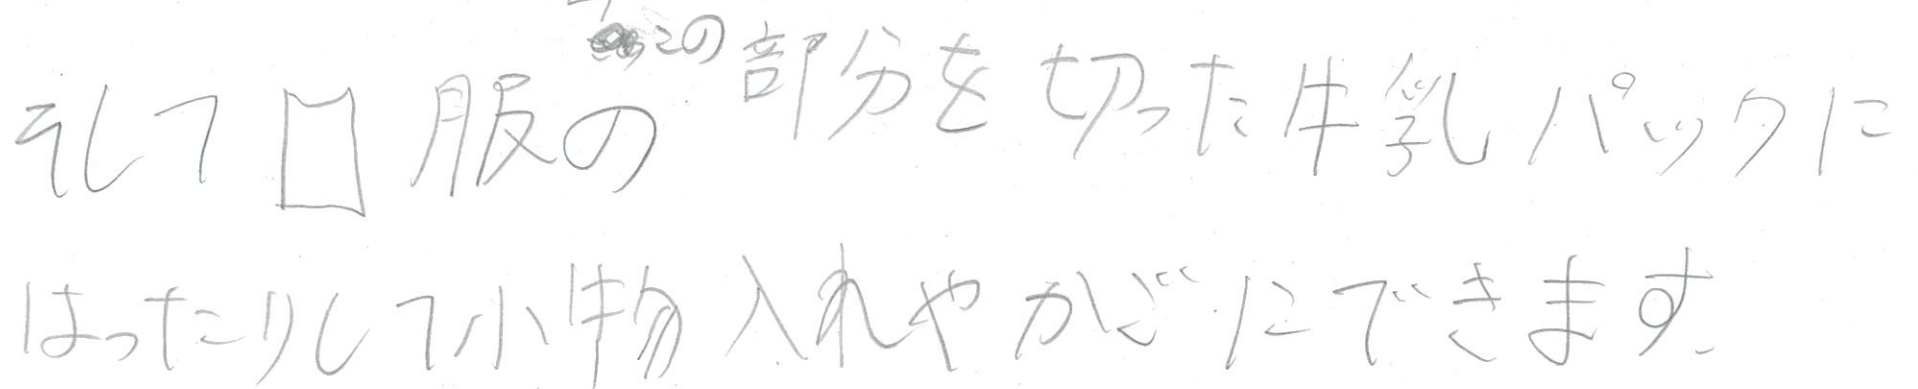 そして服のこの部分を切った牛乳パックに
はったりして小物入れやかごにできます。